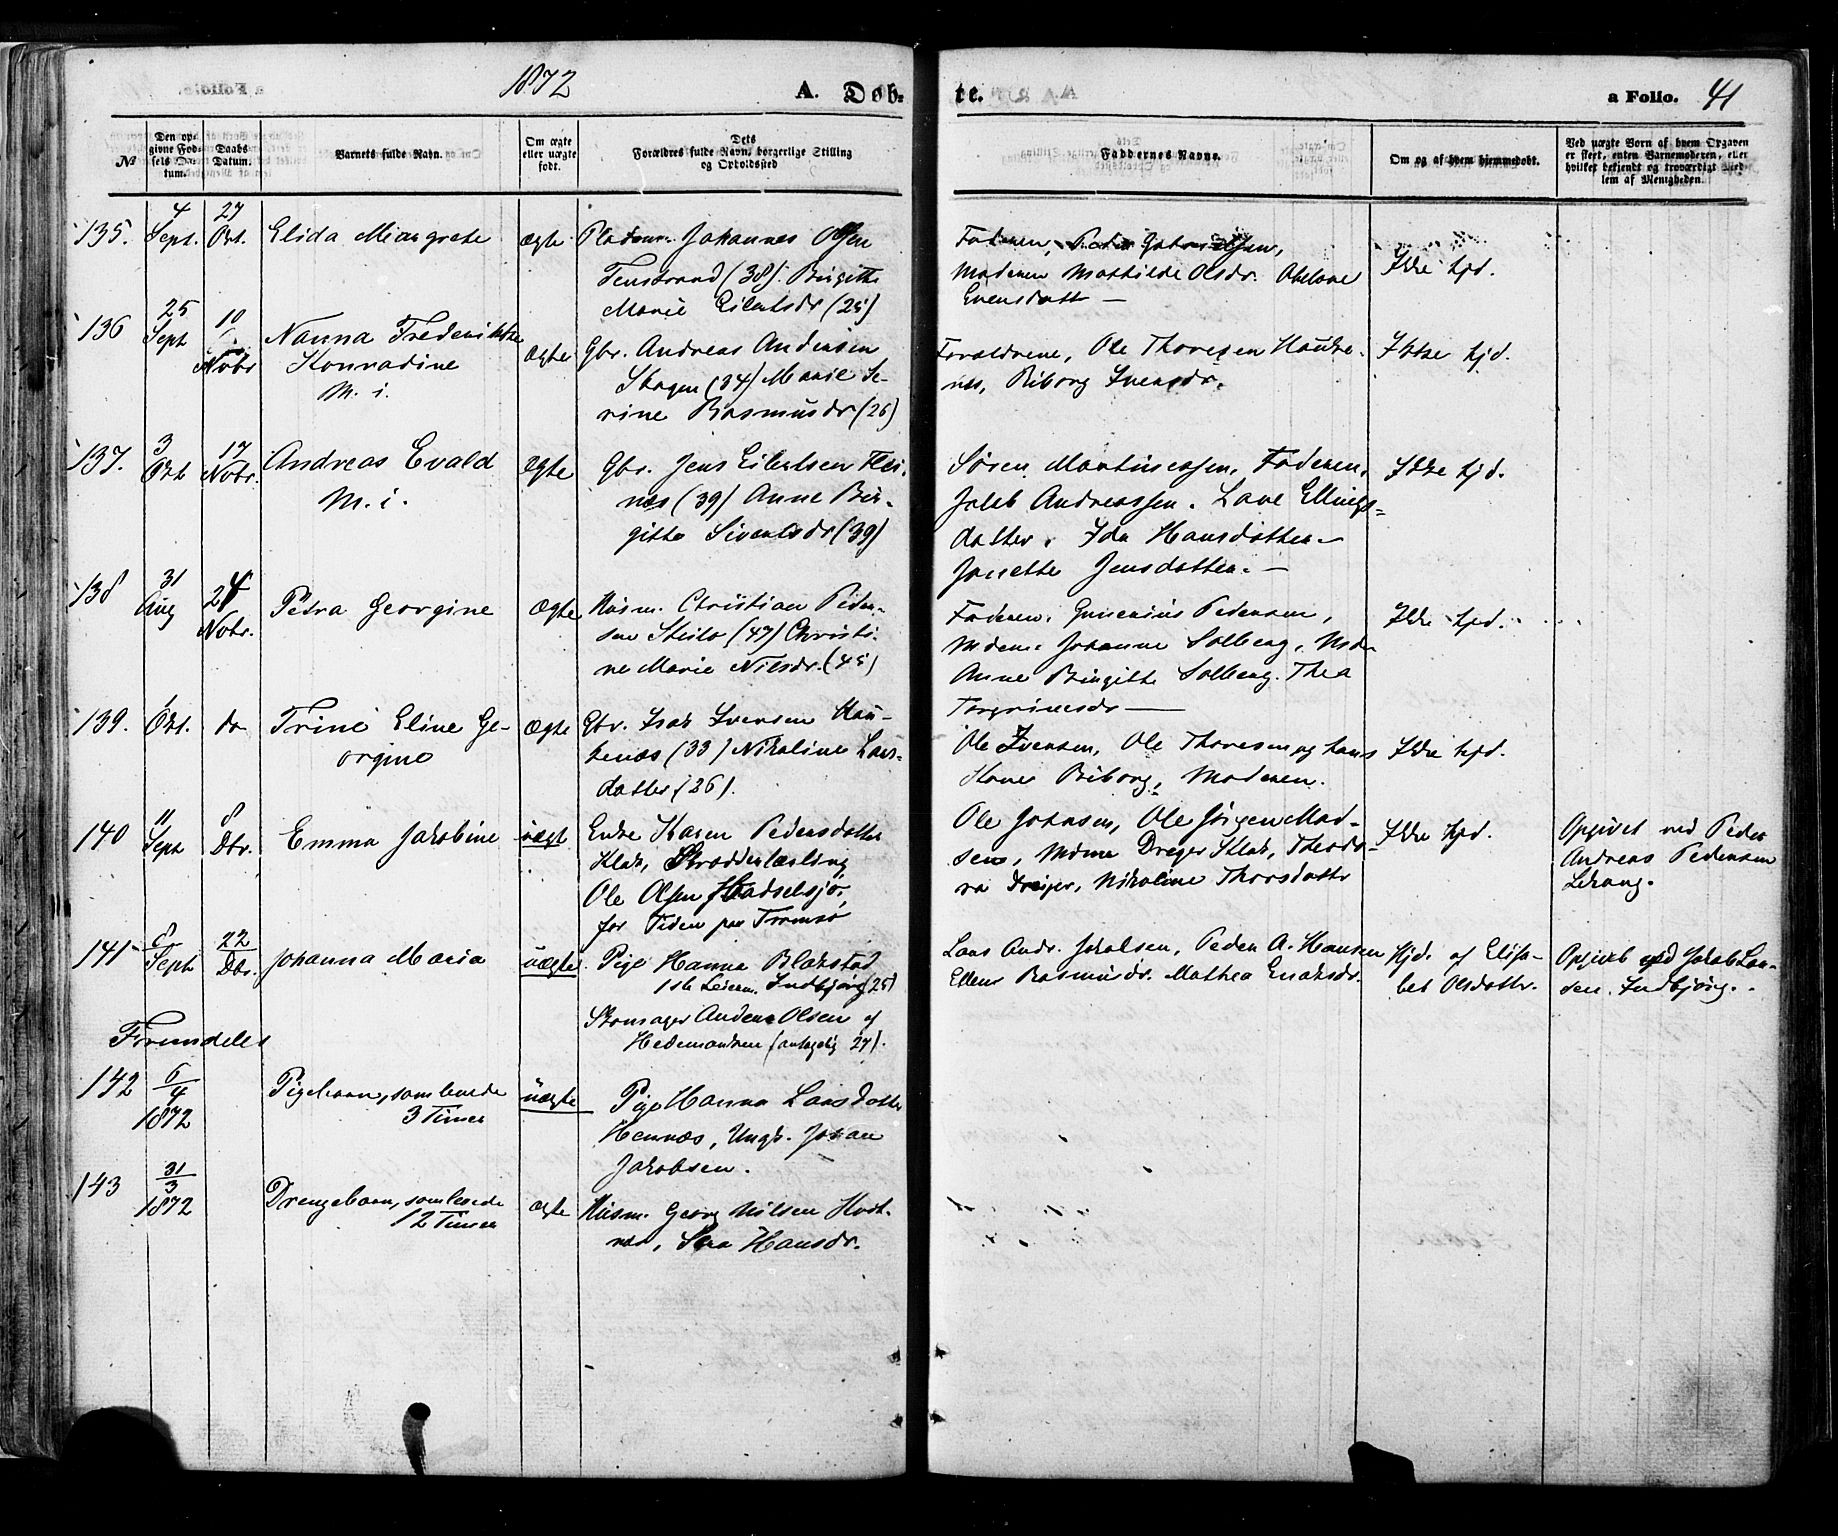 1872 A. Døb-
te. a Folio. 41
№
Den op-
givne Fød-
sels Da-
tum.
Daabs
Datum.
Barnets fulde Navn.
Om ægte
eller uægte
født.
Dets
Forældres fulde Navn, borgerlige Stilling
og Opholdssted
Faddernes Navne.
Om og af hvem hjemmedøbt.
Ved uægte Børn af hvem Opgaven
er skeet, enten Barnemoderen, eller
hvilket bekjendt og troværdigt Med-
lem af Menigheden.
135. 4 Sept. 27 Okt. Elida Margrete ægte Johannes Olsen
(38). Birgitte
Marie Eilertsdr (25)
Faderen, Peder
Moderen Mathilde Olsdr.
Evensdatt
Ikke hjd.
136 25 Sept 10 Nobr Nanna Frederikke
Konradine
M. i.
ægte Gbr. Andreas Andersen
Skagen (34) Marie Se-
rine Rasmusdr (26)
Forældrene, Ole Thoresen Hauke-
nes, Riborg Iversdr.
Ikke hjd.
137. 3 Okt 17 Nobr. Andreas Evald
M. i.
ægte Gbr. Jens Eilertsen Fles-
næs (39) Anne Bir-
gitte Sivertsdr (39)
Søren Martinussen, Faderen,
Jakob Andreassen. Lave Ellings-
datter. Ida Hansdatter
Jensdatter.
Ikke hjd.
138 31 Aug 24 Nobr. Petra Georgine ægte Husm. Christian Peder-
sen Steilo (47) Christi-
ne Marie Nilsdr. (45)
Faderen. Pedersen,
Johanne Solberg,
Anne Birgitte Solberg. Thea
Torgrimsdr
Ikke hjd.
139. Okt. do Trine Eline Ge-
orgine
ægte Gbr. Isak Iversen Hau-
kenæs (33) Nikoline Lars-
datter (26).
Ole Ivensen, Ole Thoresen og hans
Kone Riborg, Moderen.
Ikke hjd.
140 11 Sept 8 Dbr. Emma Jakobine uægt Enke Karen Pedersdatter
Klak, Skrædderlærling
Ole Olsen Hadselsjø,
for Tiden paa Tromsø
Ole Johnsen, Ole Jørgen Mad-
sen, Dreyer Klak, Theodo-
ra Dreijer, Nikoline Thorsdattr
Ikke hjd.
Opgivet ved Peder
Andreas Pedersen
Lekang.
141 8 Sept 22 Dbr. Johanna Maria uægte. Pige Hanna Blakstad
1ste Leierm. Indbjörg (25)
Skomager Anders Olsen af
Hedemarken (antagelig 27).
Lars Andr. Jakobsen, Peder A. Hansen
Ellen Rasmusdr. Mathea Eriksdr.
Hjd. af Elisa-
bet Olsdattr.
Opgivet ved Jakob Lar-
sen Indbjörg.
Fremdeles
142 6/4 1872 Pigebarn, som levede
3 Timer
uægte Pige Hanna Larsdatter
Hennæs, Ungk. Johan
Jakobsen.
143 31/3 1872 Drengebarn, som levede
12 Timer
ægte Husm. Georg Nilsen Hust-
næs, Sara Hansdr.